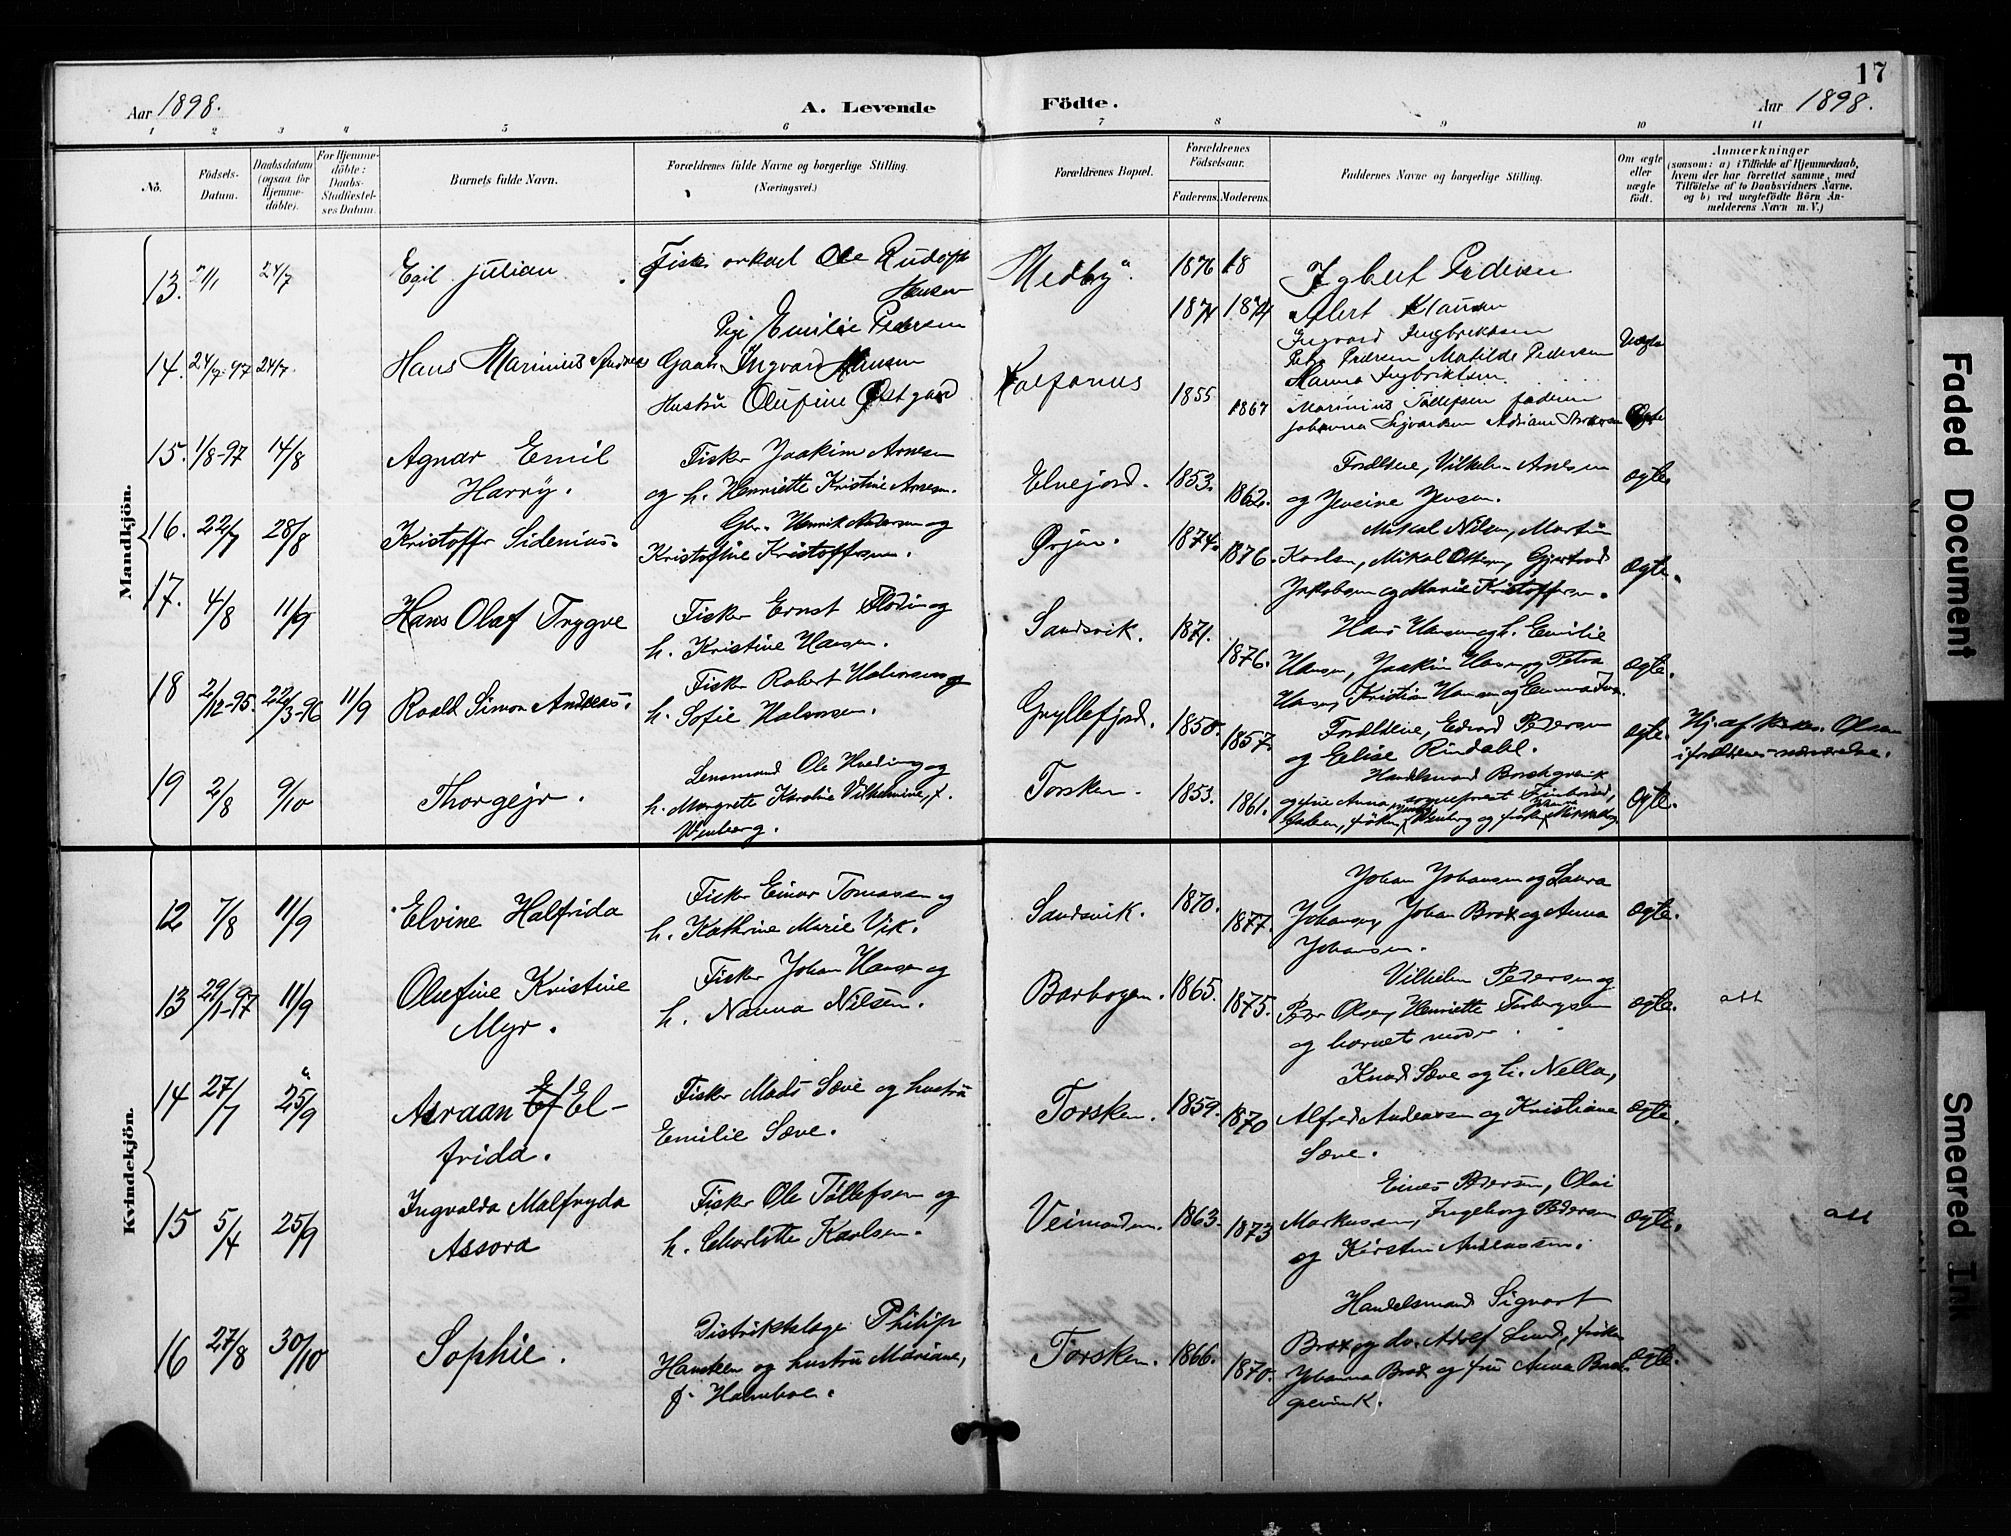 17
Aar 1898.
A. Levende
Födte.
Aar 1898.
1 2 3 4 5 6 7 8 9 10 11
No.
Födsels-
Datum.
Daabsdatum
(ogsaa for
Hjemme-
döbte).
For Hjemme-
döbte:
Daabs-
Stadfæstel-
ses Datum.
Barnets fulde Navn.
Forældrenes fulde Navne og borgerlige Stilling.
(Næringsvei.)
Forældrenes Bopæl.
Forældrenes
Födselsaar.
Faderens. Moderens.
Faddernes Navne og borgerlige Stilling.
Om ægte
eller
uægte
födt.
Anmærkninger
(saasom: a) i Tilfælde af Hjemmedaab,
hvem der har forrettet samme, med
Tilföielse af to Daabsvidners Navne,
og b) ved uægtefödte Börn An-
melderens Navn m. V.)
Mandkjön.
13. 24/7 Egil Julian
Fisk Ole Rudolf
Hansen
Pige Emilie Pedersen
Medby 1876 18
1874 1874
Pedersen
Ingvard Ingbriktsen
Pedersen Matilde Pedersen
Hanna Ingbriktsen
Uægte
14. 24/7-97 24/7. Hans Marinius
Ingvard Hansen
Hustru Olufine Østgaard
Kalfarnes 1855 1867
Marinius Tollefsen faderen
Johanna Sigvardsen
15. 1/8-97 14/8 Agnar Emil
Harry.
Fisker Joakim Arnesen
og h. Henriette Kristine Arnesen.
Elvejord. 1853. 1862.
Forældrene, Vilhelm Arnesen
og Jensine Jensen.
ægte.
16. 22/7 28/8 Kristoffer Sidenius.
Gbr. Henrik Andersen og
Kristofine Kristoffersen.
Ørjan. 1874. 1876.
Mikal Nilsen, Martin
Karlsen, Mikal Ottesen, Gjertrud
Jakobsen og Marie Kristoffersen.
ægte.
17. 4/8 11/9 Hans Olaf Trygve
Fisker Ernst Flodin og
h. Kristine Hansen.
Sandsvik. 1871. 1876.
Hans Hansen og h. Emilie
Hansen, Joakim Hansen og Petra
Hansen, Kristian Hansen og Emma
ægte.
18 2/12-95. 22/3-96 11/9 Roald Simon Andreas.
Fisker Robert Halvorsen og
h. Sofie Halvorsen.
Gryllefjord. 1850. 1857.
Forældrene, Edvard Pedersen
og Elise Rindahl.
ægte.
Hj. af Olsen
i forældrenes nærværelse.
19 2/8 9/10 Thorgejr.
Lensmand Ole Hveding og
h. Margrete Karoline Vilhelmine, f.
Wenberg.
Torsken. 1853. 1861.
Handelsmand Borchgrevink
og frue Anna, sogneprest
ægte.
Kvindekjön.
12 7/8 11/9 Elvine Halfrida
Fisker Einar Tomassen og
h. Kathrine Marie Vik.
Sandsvik. 1870. 1877.
Johan Johansen og Laura
Johansen, Johan Brox og Anna
Johansen.
ægte.
13 29/1-97 11/9 Olufine Kristine
Myr.
Fisker Johan Hansen og
h. Nanna Nilsen.
Barbogen. 1865. 1875.
Vilhelm Pedersen og
Peder Olsen, Henriette Torbergsen
og barnets moder
ægte.
att
14 27/7 25/9 Asraan El-
frida.
Fisker Mads Sæve og hustru
Emilie Sæve.
Torsken. 1859. 1870
Knud Sæve og h. Nella,
Alfred Andreassen og Kristiane
Sæve.
ægte.
15 5/4 25/9 Ingvalda Malfryda
Assora
Fisker Ole Tollefsen og
h. Charlotte Karlsen.
Veimanden. 1863. 1873
Eines Pedersen, Olai
Markussen, Ingeborg Pedersen
og Kirstin Andreassen.
ægte.
att
16 27/8 30/10 Sophie.
Distriktslæge Philip
Hansteen og hustru Mariane,
f. Hamboe.
Torsken. 1866. 1870.
Handelsmand Sigvart
Brox og do. Adolf Lund, frøken
Johanna Brox og frue Anna Borch-
grevink.
ægte.
Faded Document
Smeared Ink